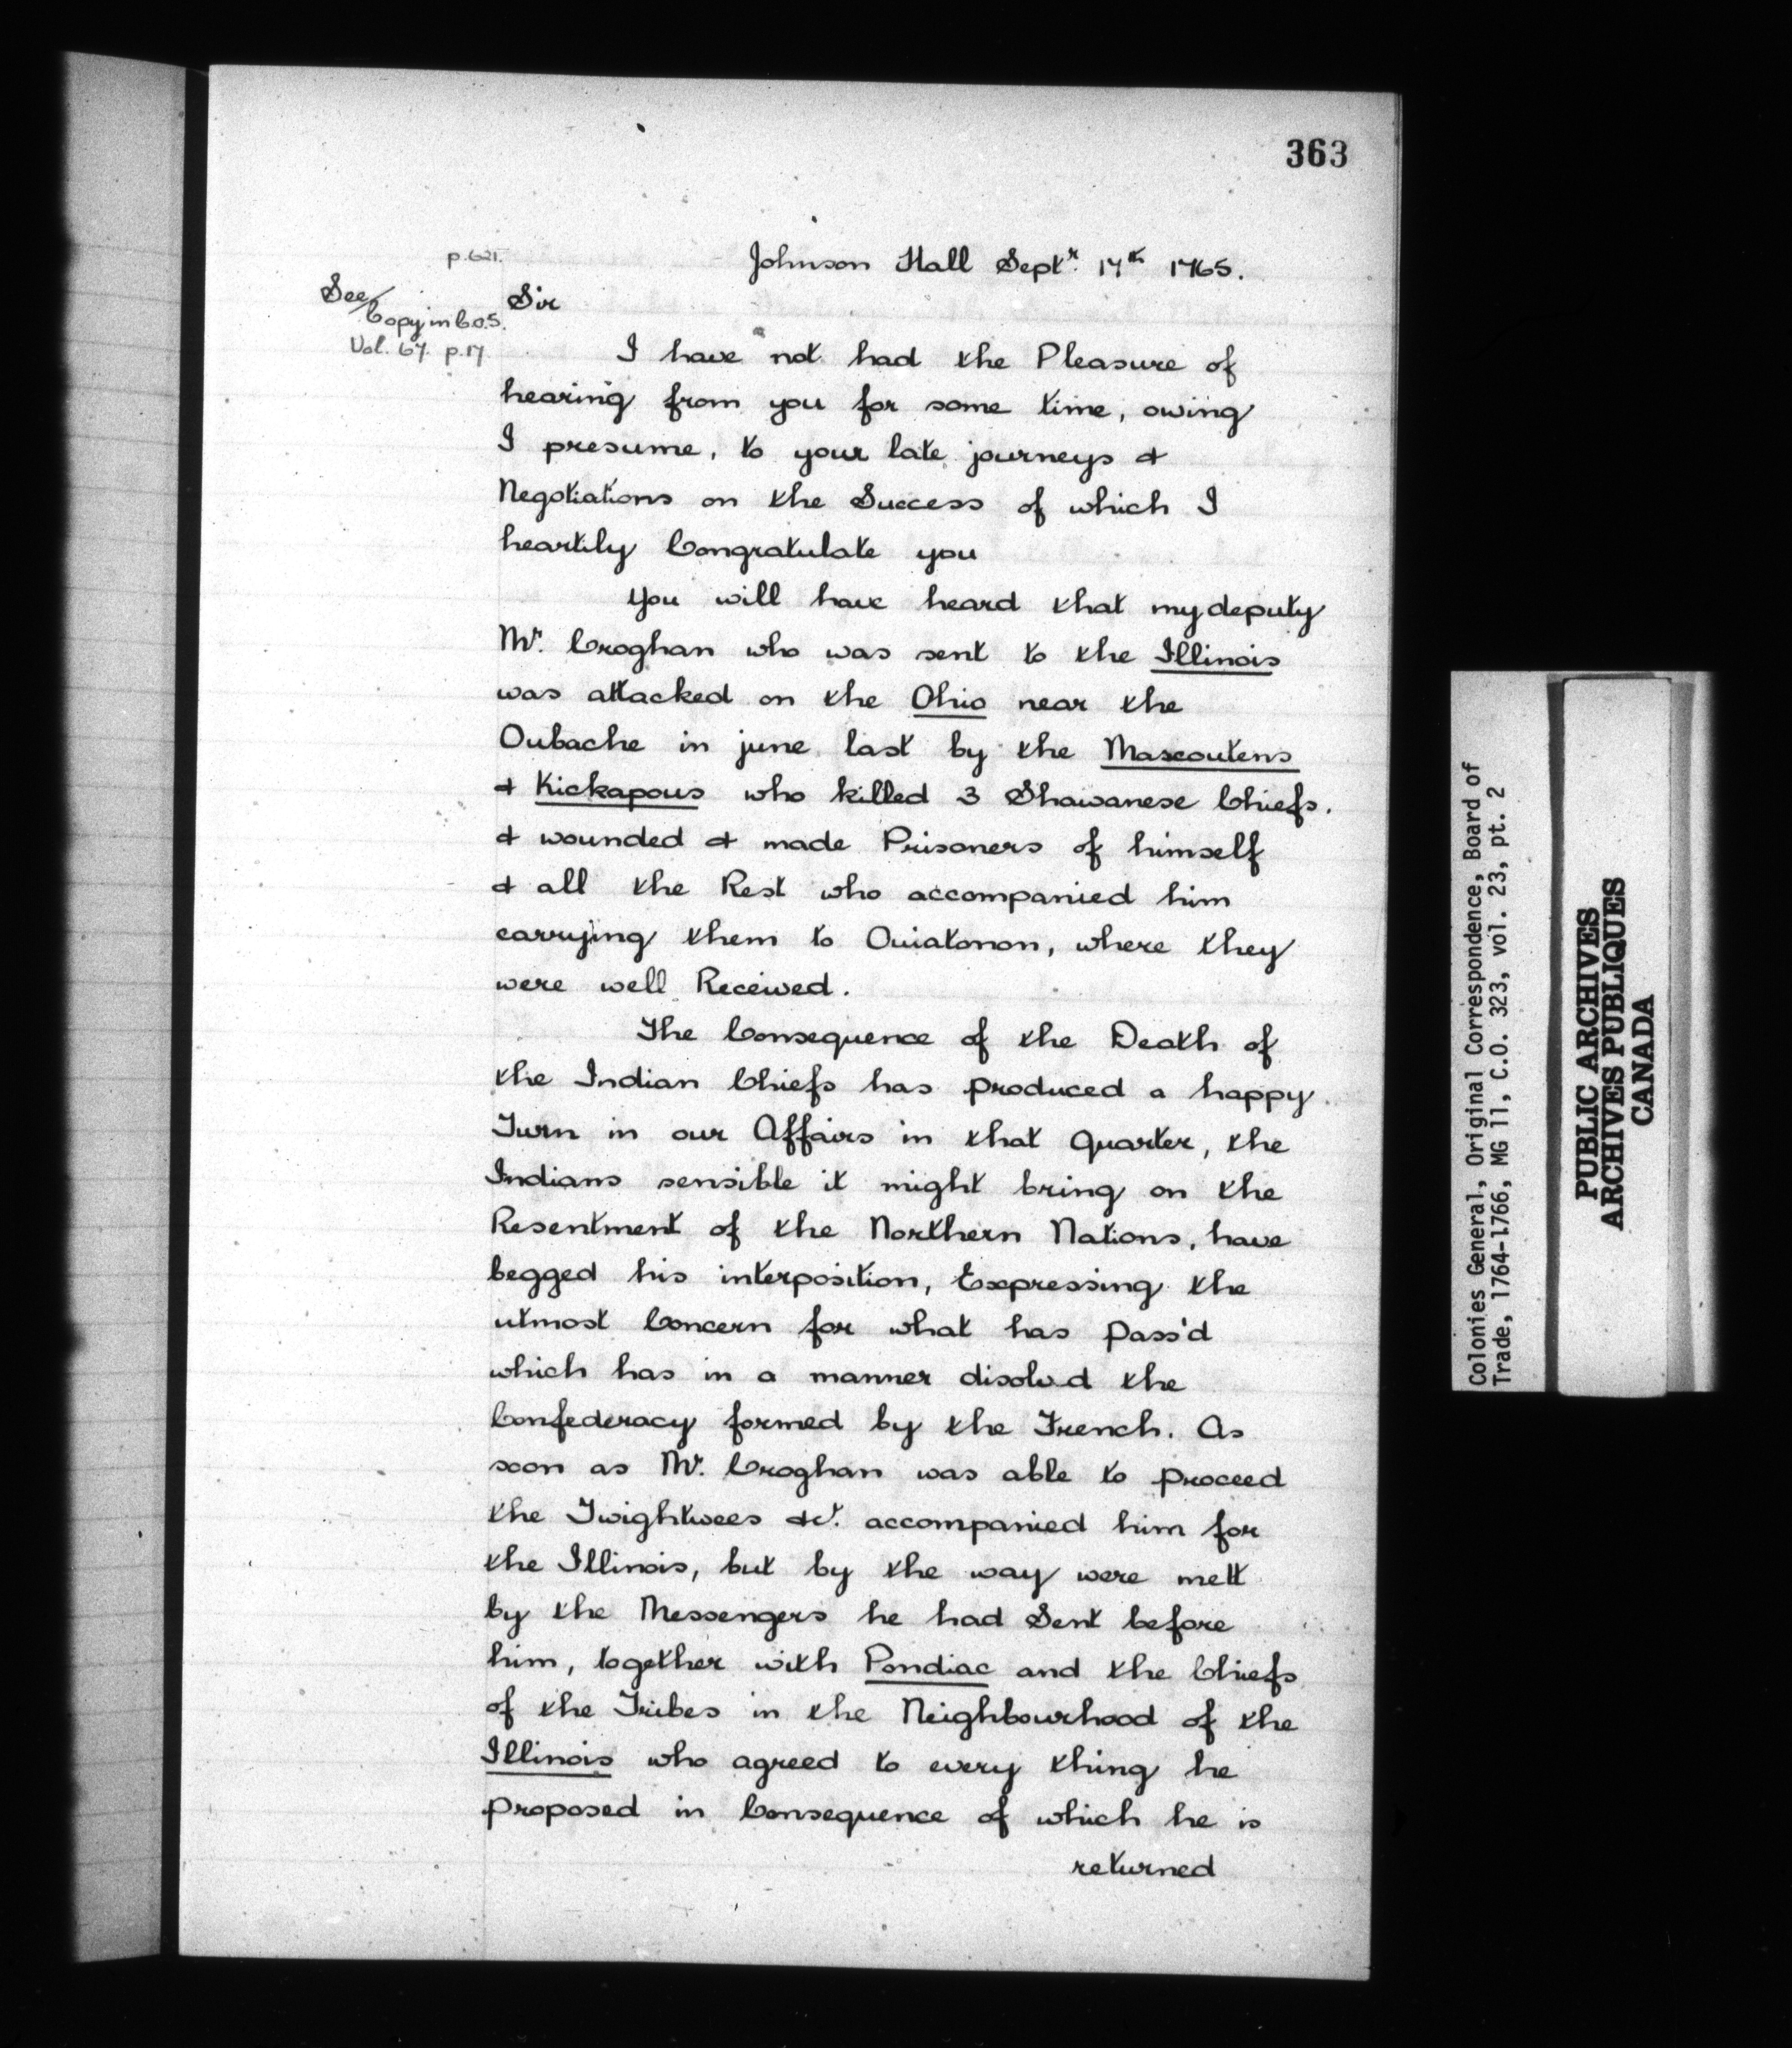 363
p. 621.
Johnson Hall Septr. 17th 1765.
See
Copy in C.O.5.
Vol. 67. p. 17
Sir
I have not had the Pleasure of
hearing from you for some time, owing
I presume, to your late journeys &
Negotiations on the Success of which I
heartily Congratulate you
You will have heard that my deputy
Mr. Croghan who was sent to the Illinois
was attacked on the Ohio near the
Oubache in june last by the Mascoutens
& Kickapous who killed 3 Shawanese Chiefs.
& wounded & made Prisoners of himself
& all the Rest who accompanied him
carrying them to Ouiatonon, where they
were well Received.
The Consequence of the Death of
the Indian Chiefs has produced a happy
Turn in our Affairs in that quarter, the
Indians sensible it might bring on the
Resentment of the Northern Nations, have
begged his interposition, Expressing the
utmost Concern for what has pass'd
which has in a manner disolv.d the
Confederacy formed by the French. As
soon as Mr. Croghan was able to proceed
the Twightwees &c. accompanied him for
the Illinois, but by the way were mett
by the Messengers he had Sent before
him, together with Pondiac and the Chiefs
of the Tribes in the Neighbourhood of the
Illinois who agreed to every thing he
proposed in Consequence of which he is
returned
Colonies General, Original Correspondence, Board of
Trade, 1764-1766, MG 11, C.O. 323, vol. 23, pt. 2
PUBLIC ARCHIVES
ARCHIVES PUBLIQUES
CANADA